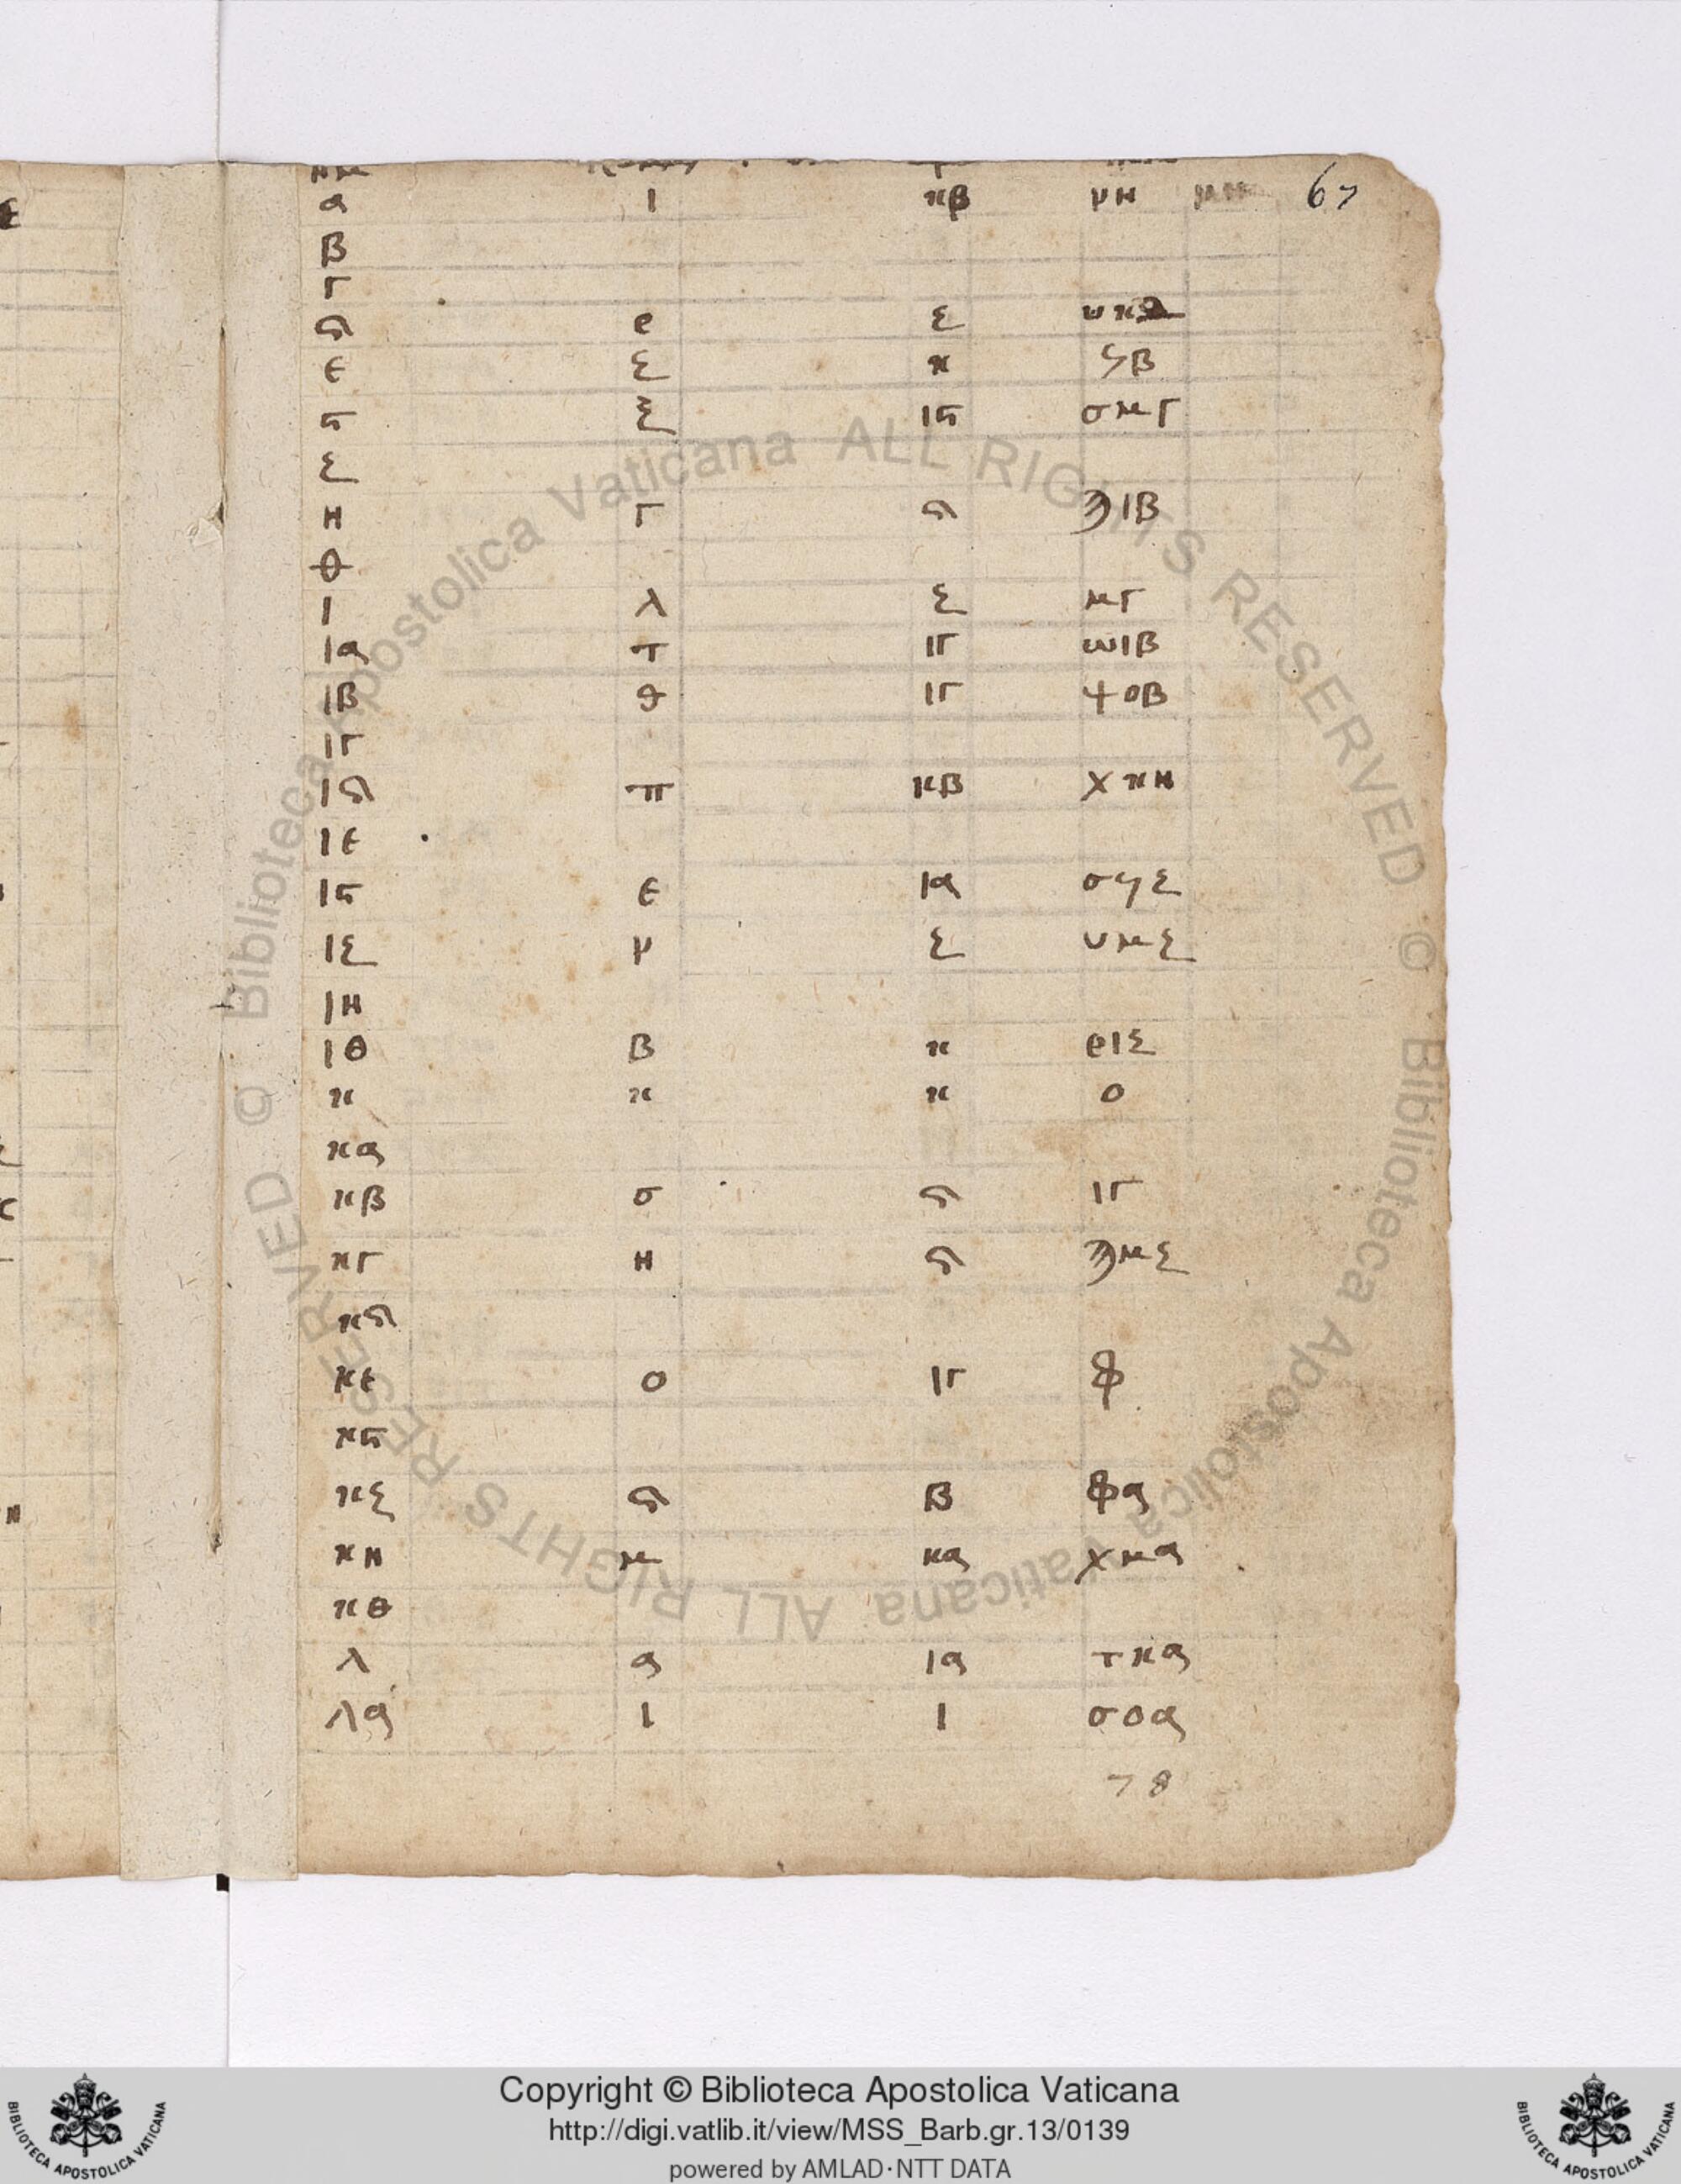 α ι κβ νη 67
β
γ
δ ρ ζ
ε ζ κ ϟβ
ϛ ξ ιϛ σμγ
ζ
η γ δ ϡιβ
θ
ι λ ζ μγ
ια τ ιγ ωιβ
ιβ θ ιγ ψοβ
ιγ
ιδ π κβ χκη
ιε
ιϛ ε ια σϟζ
ιζ ν ζ υμζ
ιη
ιθ β κ ριζ
κ κ κ ο
κα
κβ σ δ ιγ
κγ η δ ϡμζ
κδ
κε ο ιγ φ
κϛ
κζ δ β φα
κη μ κα χμα
κθ
λ α ια τκα
λα ι ι σοα
78
© Biblioteca Apostolica Vaticana ALL RIGHTS RESERVED © Biblioteca Apostolica Vaticana ALL RIGHTS RESERVED
BIBLIOTECA APOSTOLICA VATICANA
Copyright © Biblioteca Apostolica Vaticana
http://digi.vatlib.it/view/MSS_Barb.gr.13/0139
powered by AMLAD·NTT DATA
BIBLIOTECA APOSTOLICA VATICANA